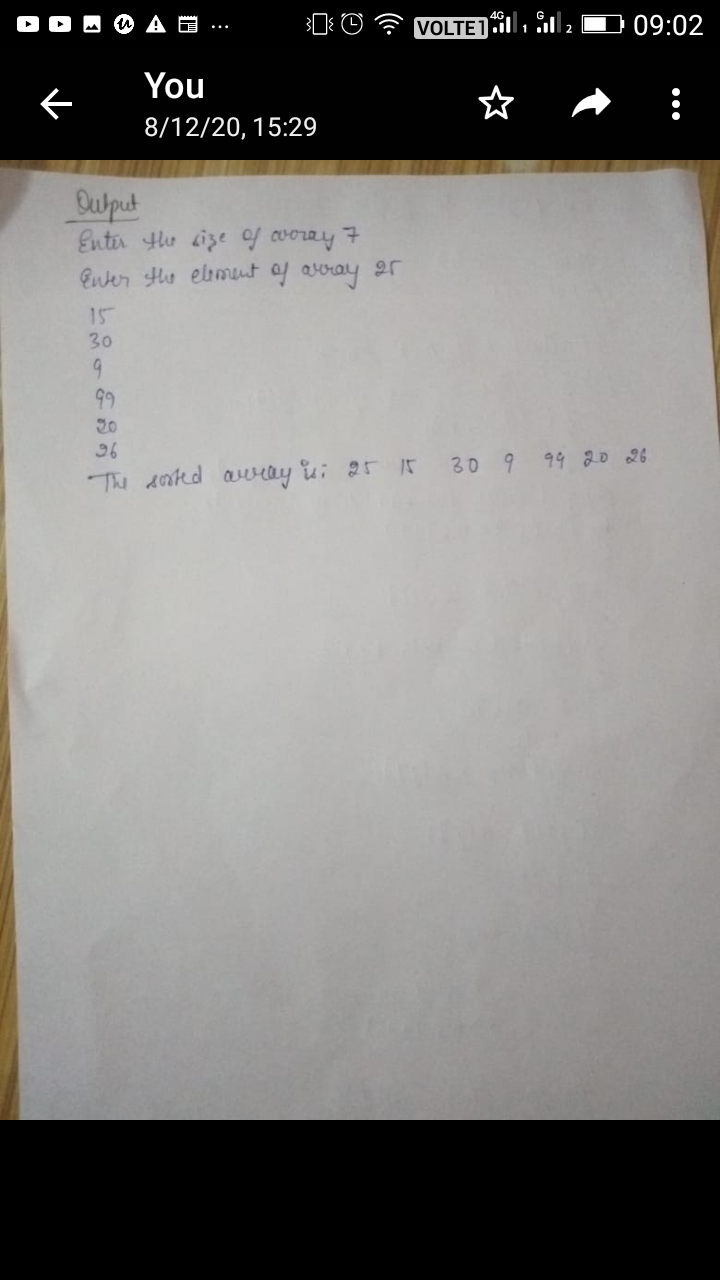 VOLTE1 4G 1 G 2 09:02
You
8/12/20, 15:29
Output
Enter the size of array 7
Enter the element of array 25
15
30
9
99
20
26
The sorted array is: 25 15 30 9 99 20 26